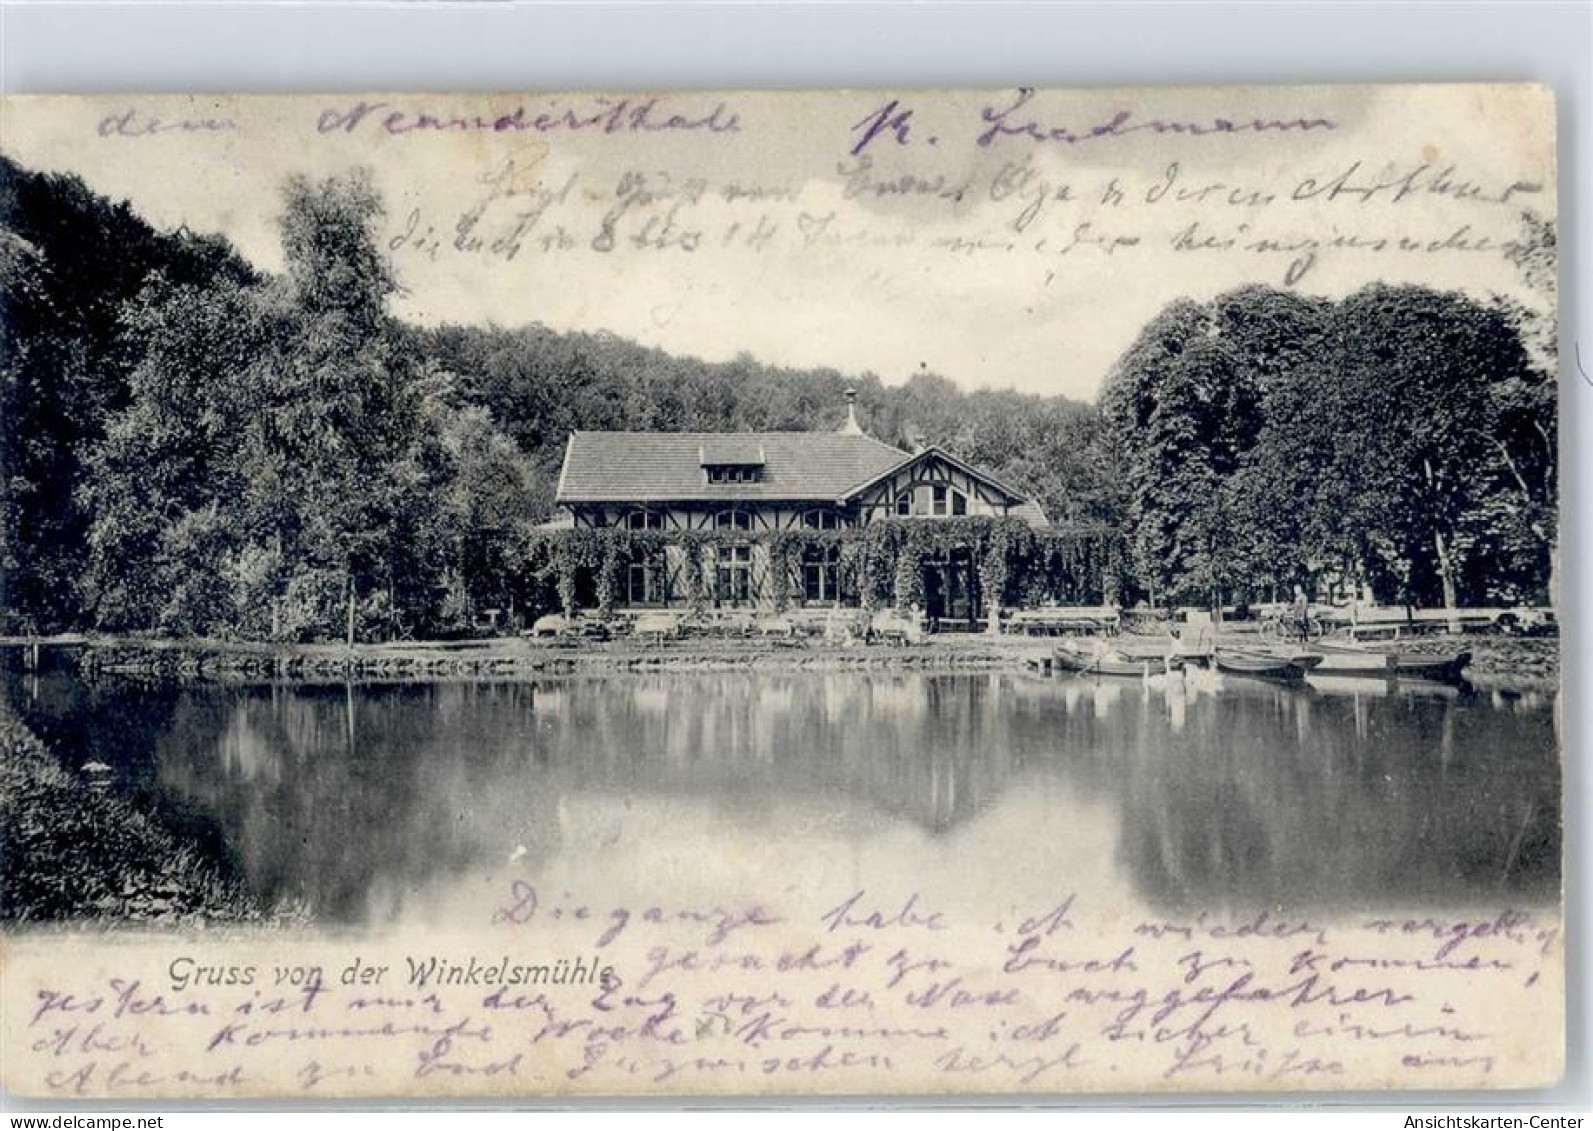 dem Neanderthale
Herzl. Gruß von Olga & deren Arthur
die Euch in 8 bis 14 Tagen wieder
Die ganze habe ich wieder vergeblich
Gruss von der Winkelsmühle
gesucht zu Euch zu kommen,
gestern ist mir der Zug vor der Nase weggefahren.
Aber kommende Woche komme ich sicher einen
Abend zu Euch Inzwischen herzl. Grüße aus
Ansichtskarten-Center